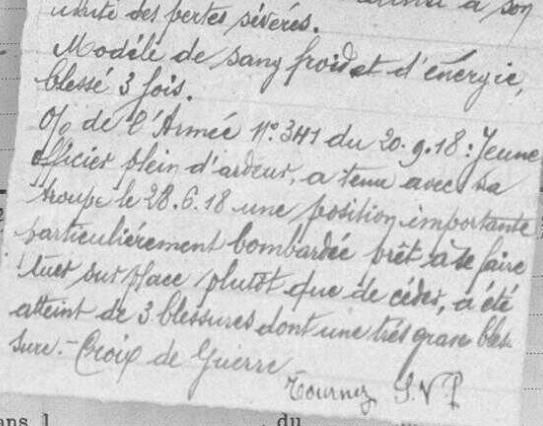 à son
unité des pertes sévères.
Modèle de sang froid et d'énergie,
blessé 3 fois.
O/ de l'Armée N° 341 du 20.9.18 : Jeune
officier plein d'ardeur, a tenu avec sa
troupe le 28.6.18 une position importante
particulièrement bombardée prêt à se faire
tuer sur place plutôt que de céder, a été
atteint de 3 blessures dont une très grave bles-
sure. - Croix de Guerre
Tournez S.V.P
ans 1 du